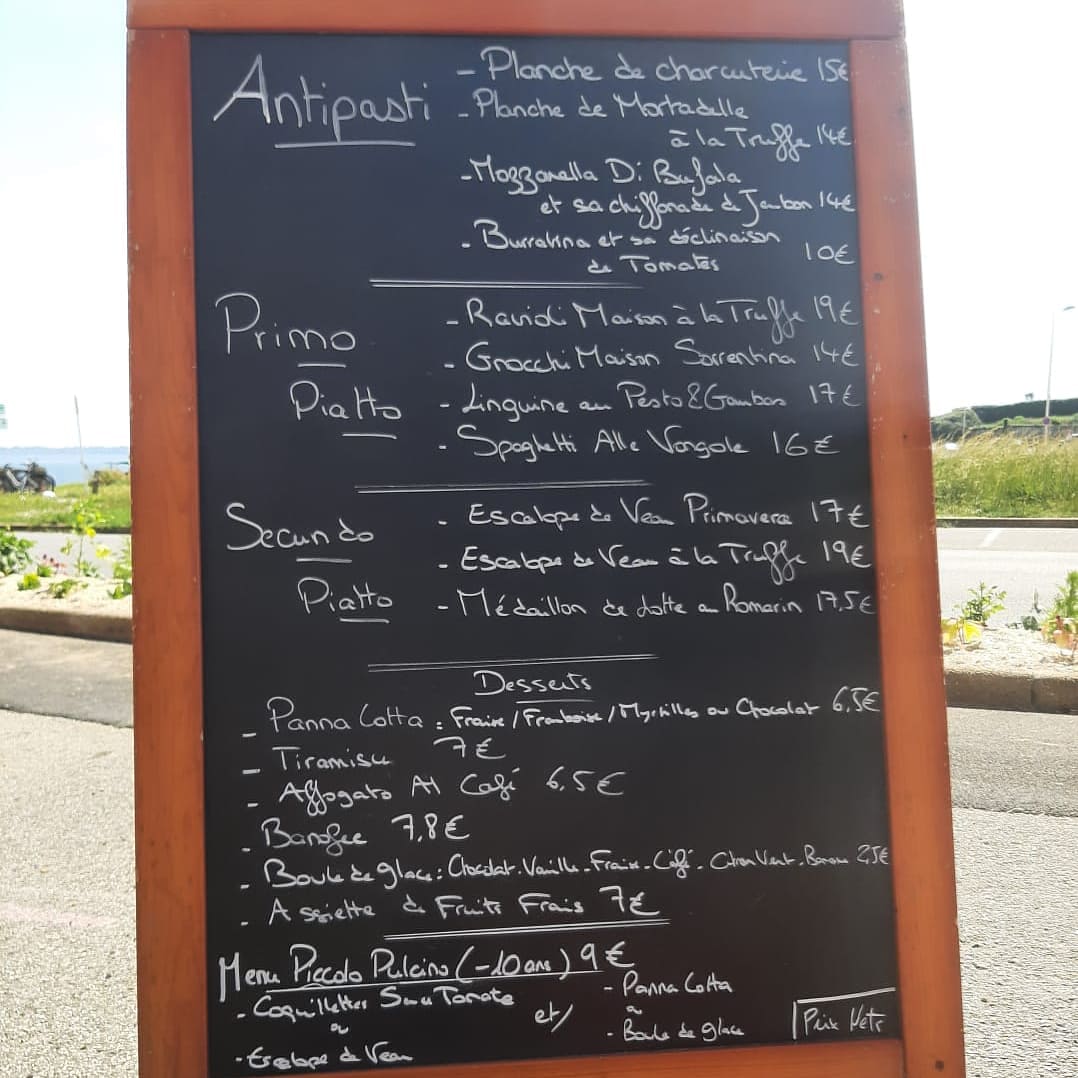 Antipasti
- Planche de charcuterie 15€
- Planche de Mortadelle
à la Truffe 14€
- Mozzarella Di Bufala
et sa chiffonade de Jambon 14€
- Burratina et sa déclinaison
de Tomates 10€
Primo
Piatto
- Ravioli Maison à la Truffe 19€
- Gnocchi Maison Sorrentina 14€
- Linguine au Pesto & Gambas 17€
- Spaghetti Alle Vongole 16€
Secundo
Piatto
- Escalope de Veau Primavera 17€
- Escalope de Veau à la Truffe 19€
- Médaillon de Lotte au Romarin 17,5€
Desserts
- Panna Cotta : Fraise / Framboise / Myrtilles ou Chocolat 6,5€
- Tiramisu 7€
- Affogato Al Café 6,5€
- Banofee 7,8€
- Boule de glace : Chocolat - Vanille - Fraise - Café - Citron Vert - 2,5€
- Assiette de Fruits Frais 7€
Menu Piccolo Pulcino (-10 ans) 9€
- Coquillettes Sauce Tomate
ou
- Escalope de Veau
et/
- Panna Cotta
ou
- Boule de glace
Prix Nets